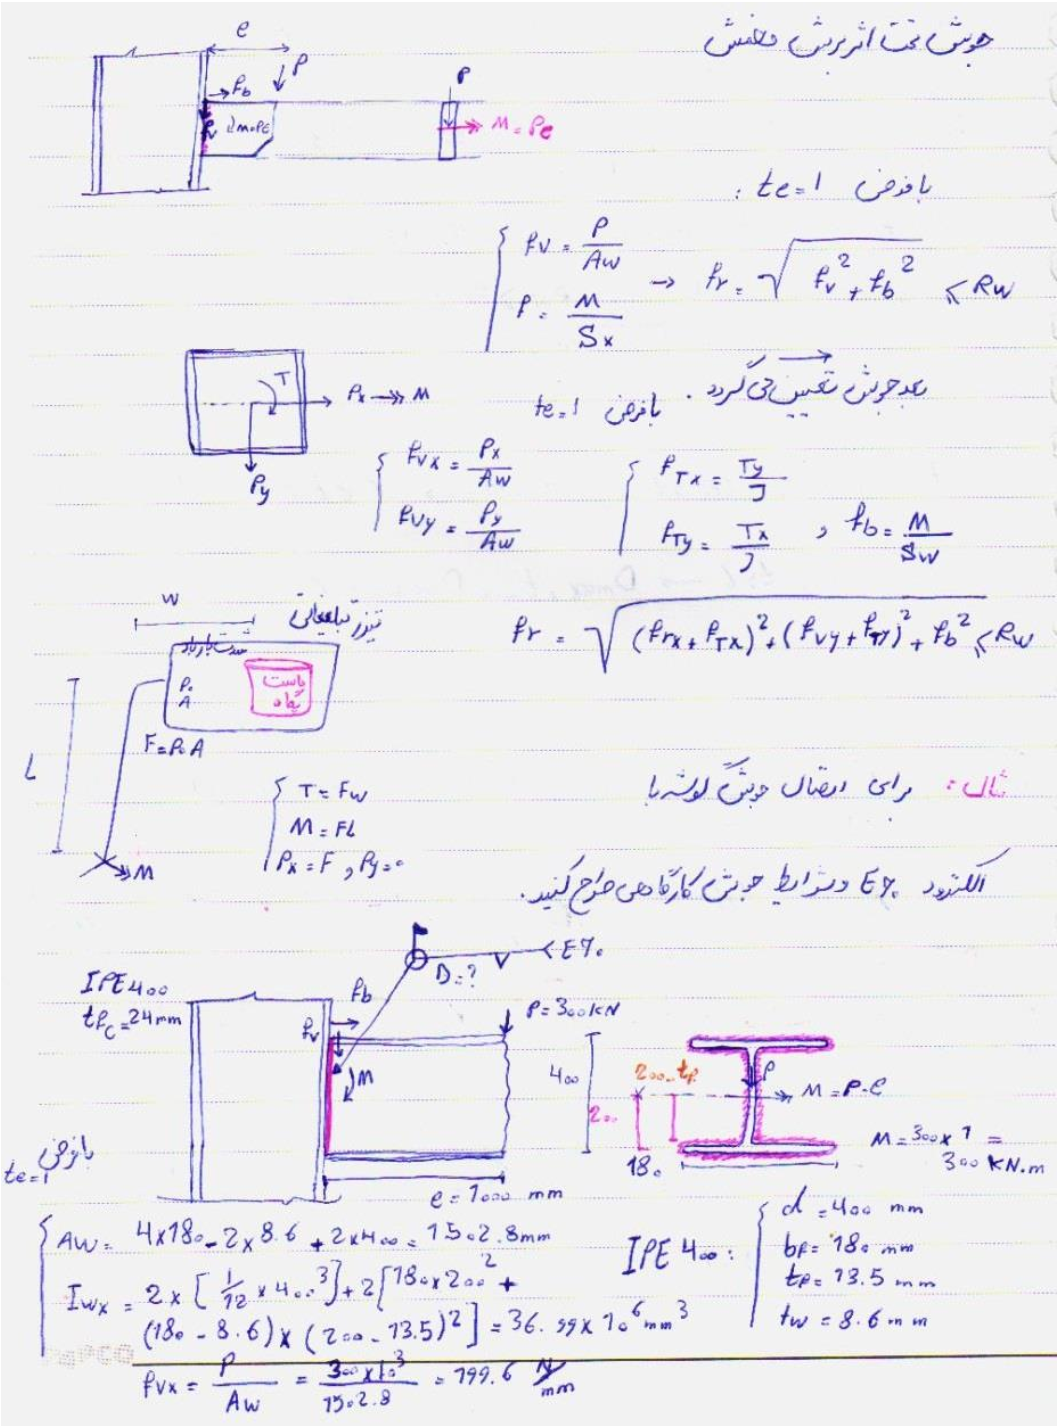 جوش تحت اثر برش و خمش
e
P
fb
fv
M=Pe
P
M = Pe
با فرض te=1 :
fv = P/Aw
f = M/Sx
→ fr = √(fv² + fb²) ≤ Rw
بعد جوش تعیین می گردد. با فرض te=1
T
Px →» M
Py
fvx = Px/Aw
fvy = Py/Aw
fTx = Ty/J
fTy = Tx/J , fb = M/Sw
fr = √((fvx + fTx)² + (fvy + fTy)² + fb²) ≤ Rw
W
تبلیغاتی
P.
A
F = P.A
L
M
T = Fw
M = FL
Px = F , Py = 0
مثال: برای اتصال جوش گوشه با
الکترود E70 و شرایط جوش کارگاهی طراحی کنید.
D=?
E70
IPE400
tfc = 24 mm
fb
fv
M
P = 300 kN
400
200
200-tf
180
P
M = P.e
M = 300 x 1 =
300 kN.m
با فرض
te=1
e = 1000 mm
Aw = 4x180 - 2x8.6 + 2x400 = 1502.8 mm
Iwx = 2 x [1/12 x 400³] + 2[180x200² +
(180 - 8.6) x (200 - 13.5)²] = 36.99x10⁶ mm³
IPE 400 :
d = 400 mm
bf = 180 mm
tf = 13.5 mm
tw = 8.6 mm
fvx = P/Aw = 300x10³/1502.8 = 199.6 N/mm